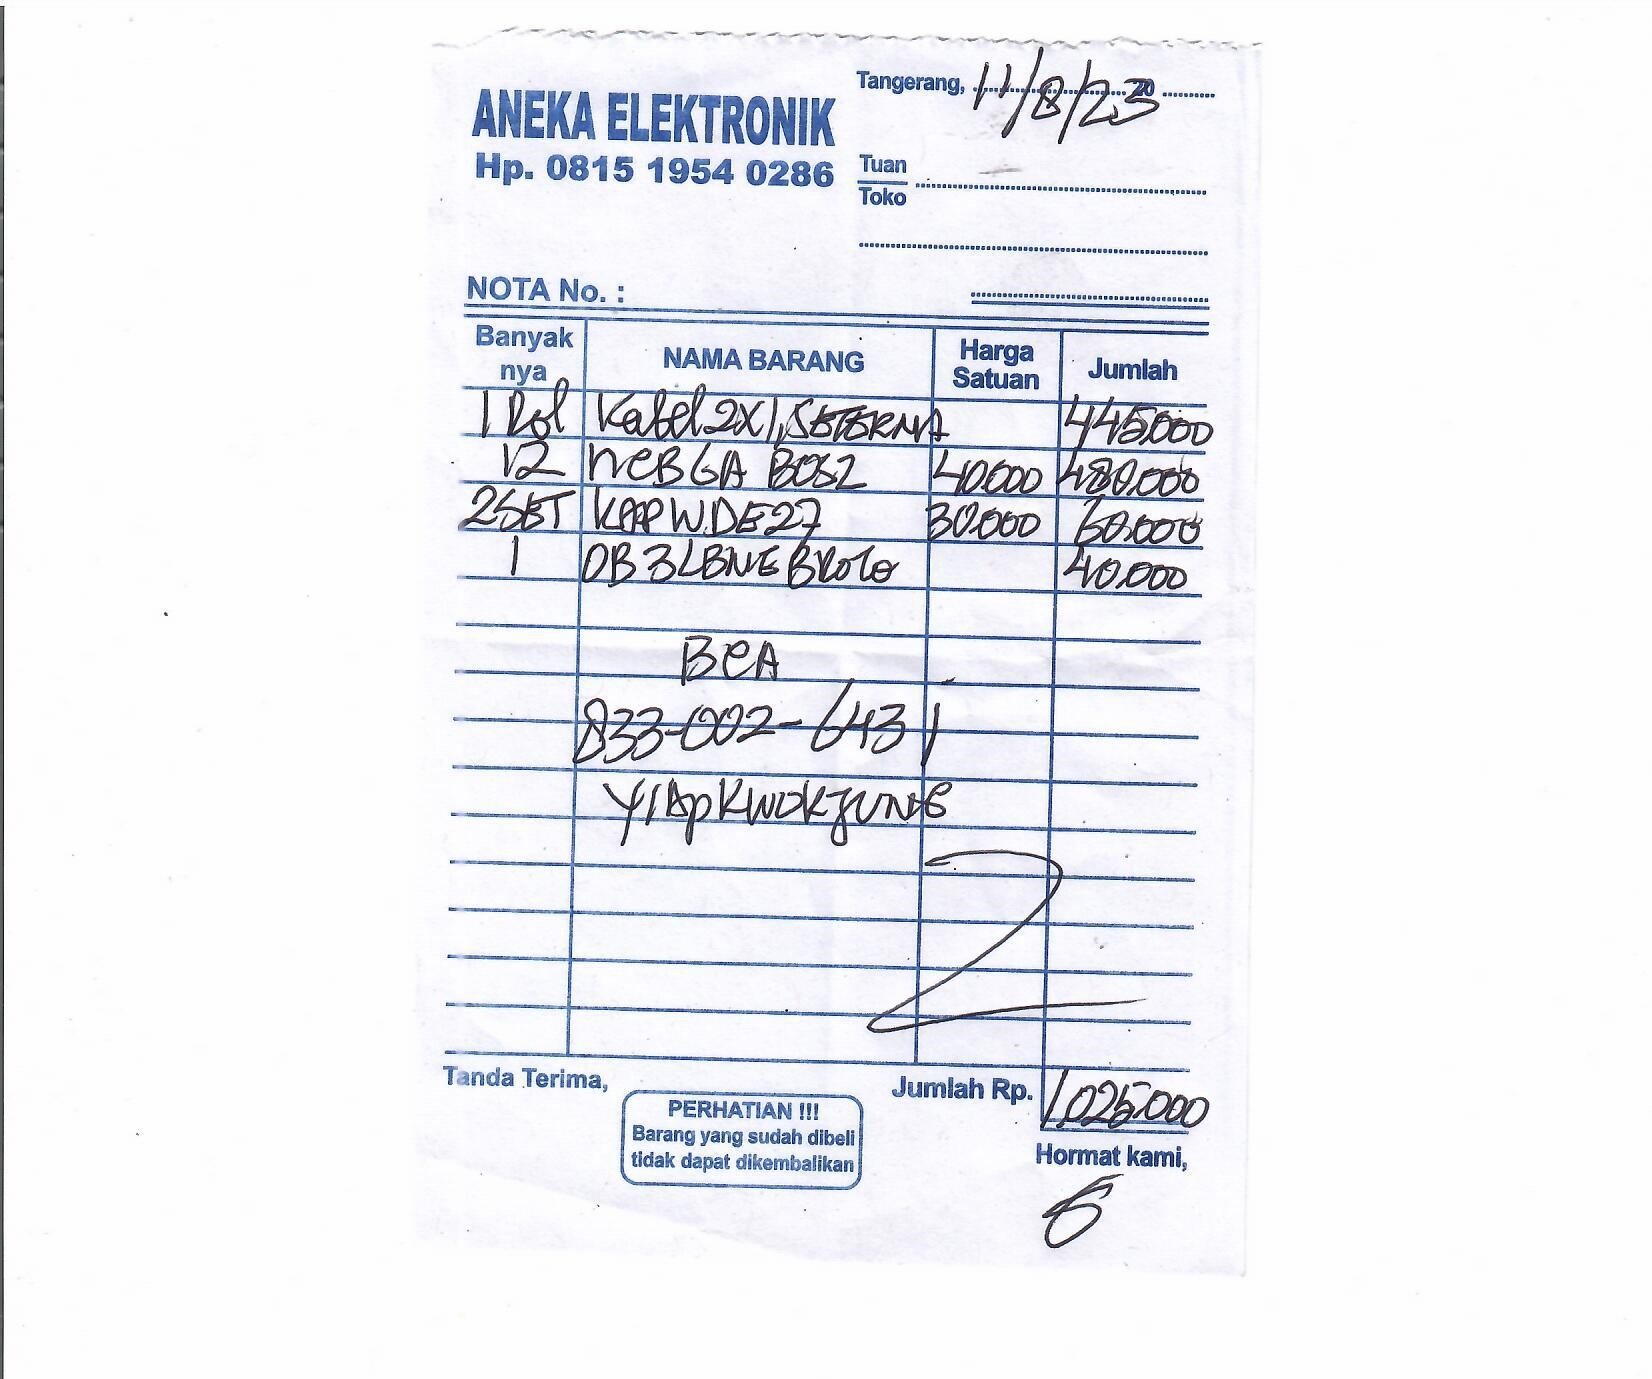 ANEKA ELEKTRONIK
Hp. 0815 1954 0286
Tangerang, 11/8/23 20
Tuan
Toko
NOTA No. :
Banyak nya NAMA BARANG Harga Satuan Jumlah
1 Rol Kabel 2X1,5 ETERNA 445.000
12 MCB 6A BOSZ 40.000 480.000
2 SET KAP WD E27 30.000 60.000
1 OB 3 LBNE BROCO 40.000
BCA
833-002-6431
YIAP KWOK JUNG
Tanda Terima, Jumlah Rp. 1.025.000
PERHATIAN !!!
Barang yang sudah dibeli
tidak dapat dikembalikan
Hormat kami,